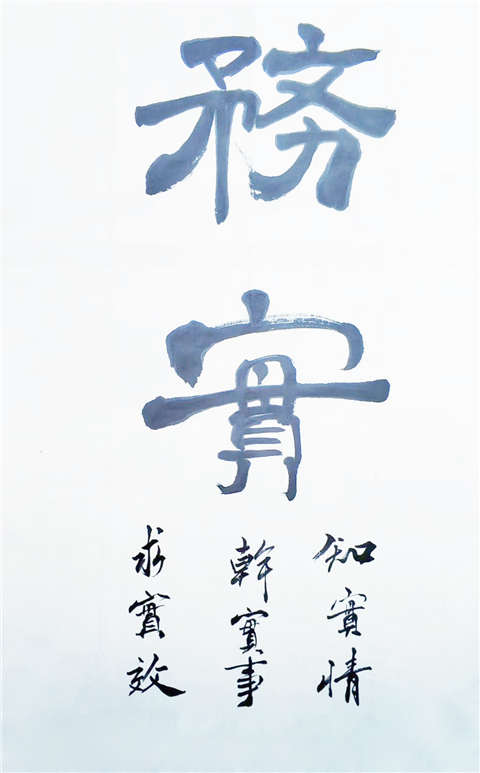 務實
知實情
幹實事
求實效